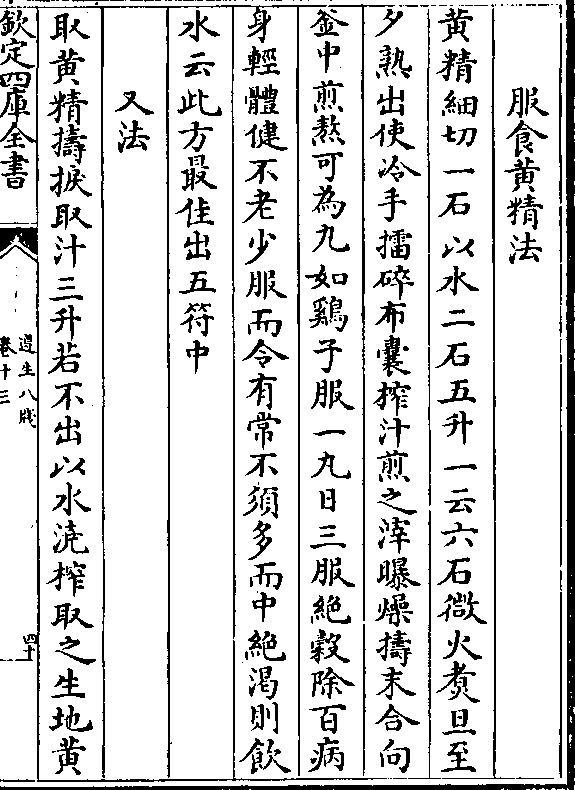 服食黄精法
黄精細切一石以水二石五升一云六石微火煑旦至
夕熟出使冷手擂碎布囊搾汁煎之滓曝燥擣末合向
釜中煎熬可為丸如鷄子服一丸日三服絶穀除百病
身輕體健不老少服而令有常不須多而中絶渴則飲
水云此方最佳出五符中
又法
取黄精擣捩取汁三升若不出以水澆搾取之生地黄
欽定四庫全書
遵生八牋
卷十三
四十